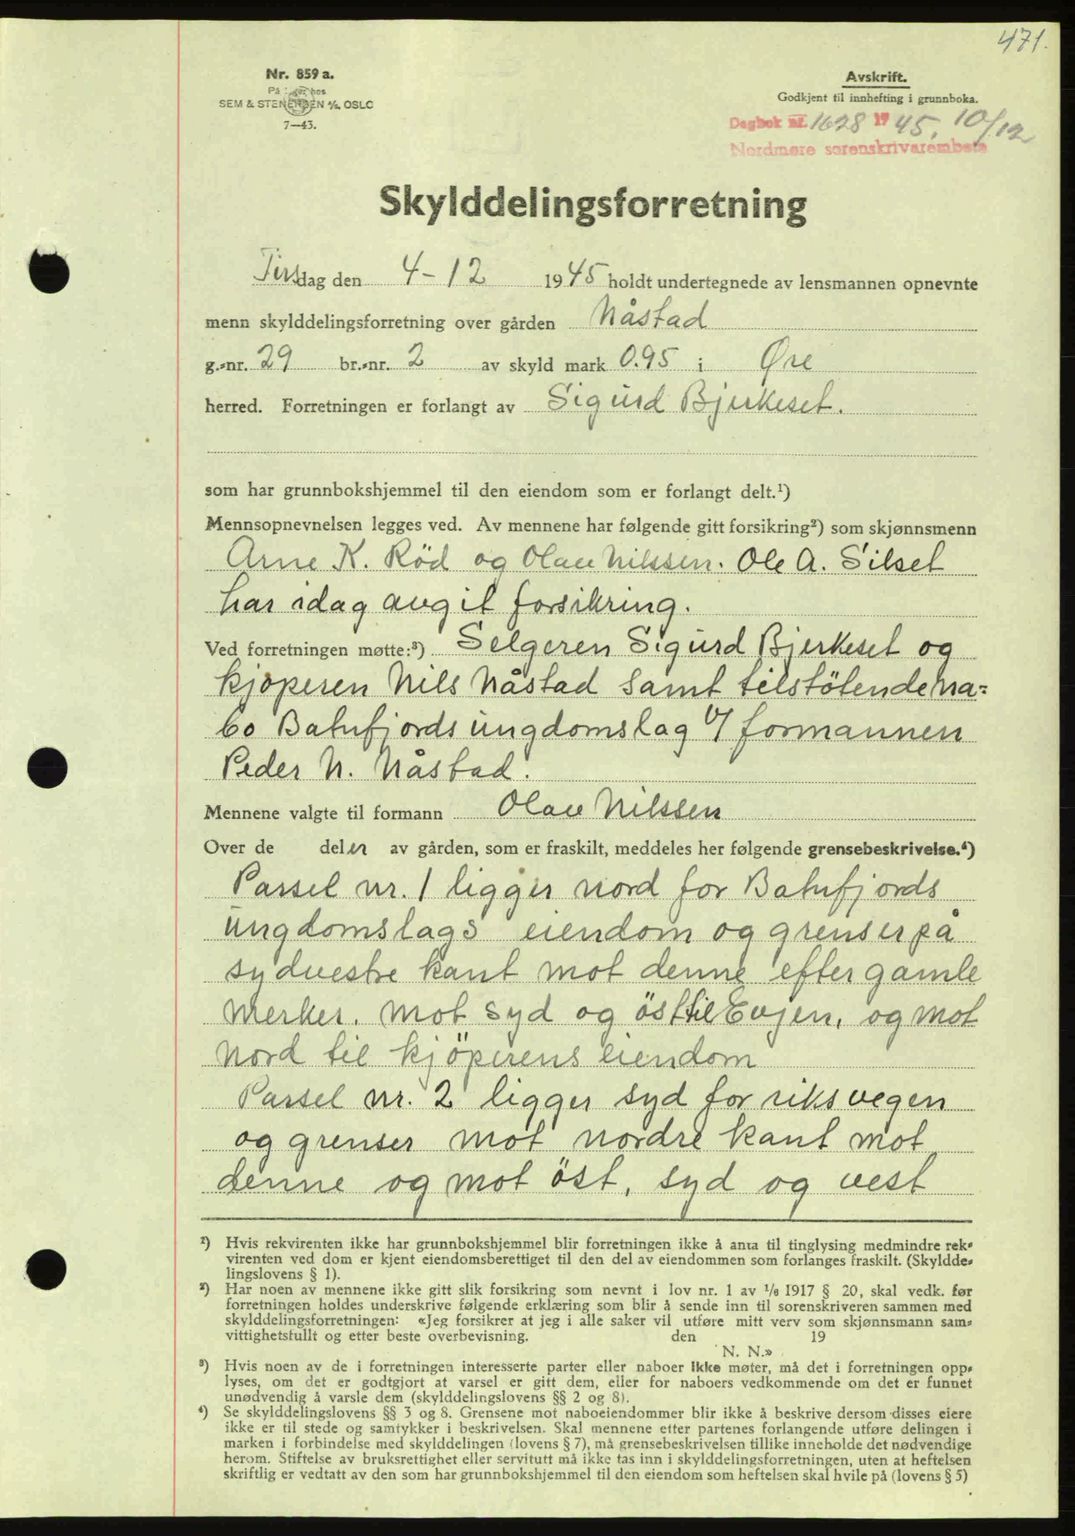 471.
Nr. 859 a.
SEM & STENERSEN A/S. OSLO
7—43.
Avskrift.
Godkjent til innhefting i grunnboka.
Dagbok nr. 1628 1945. 10/12
Nordmøre sorenskrivarembete
Skylddelingsforretning
Tirsdag den 4-12 1945 holdt undertegnede av lensmannen opnevnte
menn skylddelingsforretning over gården Nåstad
g.-nr. 29 br.-nr. 2 av skyld mark 0.95 i Øre
herred. Forretningen er forlangt av Sigurd Bjerkeset.
som har grunnbokshjemmel til den eiendom som er forlangt delt.¹)
Mennsopnevnelsen legges ved. Av mennene har følgende gitt forsikring²) som skjønnsmenn
Arne K. Rød og Olav Nilssen. Ole A. Silset
har idag avgit forsikring.
Ved forretningen møtte:³) Selgeren Sigurd Bjerkeset og
kjöperen Nils Nåstad samt tilstötende na=
bo Batnfjords ungdomslag v/ formannen
Peder N. Nåstad.
Mennene valgte til formann Olav Nilssen
Over de deler av gården, som er fraskilt, meddeles her følgende grensebeskrivelse.⁴)
Parsel nr. 1 ligger nord for Batnfjords
ungdomslags eiendom og grenser på
sydvestre kant mot denne efter gamle
merker. mot syd og öst til Evjen, og mot
nord til kjöperens eiendom
Parsel nr. 2 ligger syd for riksvegen
og grenser mot nordre kant mot
denne og mot öst, syd og vest
²) Hvis rekvirenten ikke har grunnbokshjemmel blir forretningen ikke å anta til tinglysing medmindre rek-
virenten ved dom er kjent eiendomsberettiget til den del av eiendommen som forlanges fraskilt. (Skyldde-
lingslovens § 1).
²) Har noen av mennene ikke gitt slik forsikring som nevnt i lov nr. 1 av 1/6 1917 § 20, skal vedk. før
forretningen holdes underskrive følgende erklæring som blir å sende inn til sorenskriveren sammen med
skylddelingsforretningen: «Jeg forsikrer at jeg i alle saker vil utføre mitt verv som skjønnsmann sam-
vittighetsfullt og etter beste overbevisning. den 19
N. N.»
³) Hvis noen av de i forretningen interesserte parter eller naboer ikke møter, må det i forretningen opp-
lyses, om det er godtgjort at varsel er gitt dem, eller for naboers vedkommende om det er funnet
unødvendig å varsle dem (skylddelingslovens §§ 2 og 8).
⁴) Se skylddelingslovens §§ 3 og 8. Grensene mot naboeiendommer blir ikke å beskrive dersom disses eiere
ikke er til stede og samtykker i beskrivelsen. Skal mennene etter partenes forlangende utføre delingen i
marken i forbindelse med skylddelingen (lovens § 7), må grensebeskrivelsen tillike inneholde det nødvendige
herom. Stiftelse av bruksrettighet eller servitutt må ikke tas inn i skylddelingsforretningen, uten at heftelsen
skriftlig er vedtatt av den som har grunnbokshjemmel til den eiendom som heftelsen skal hvile på (lovens § 5)